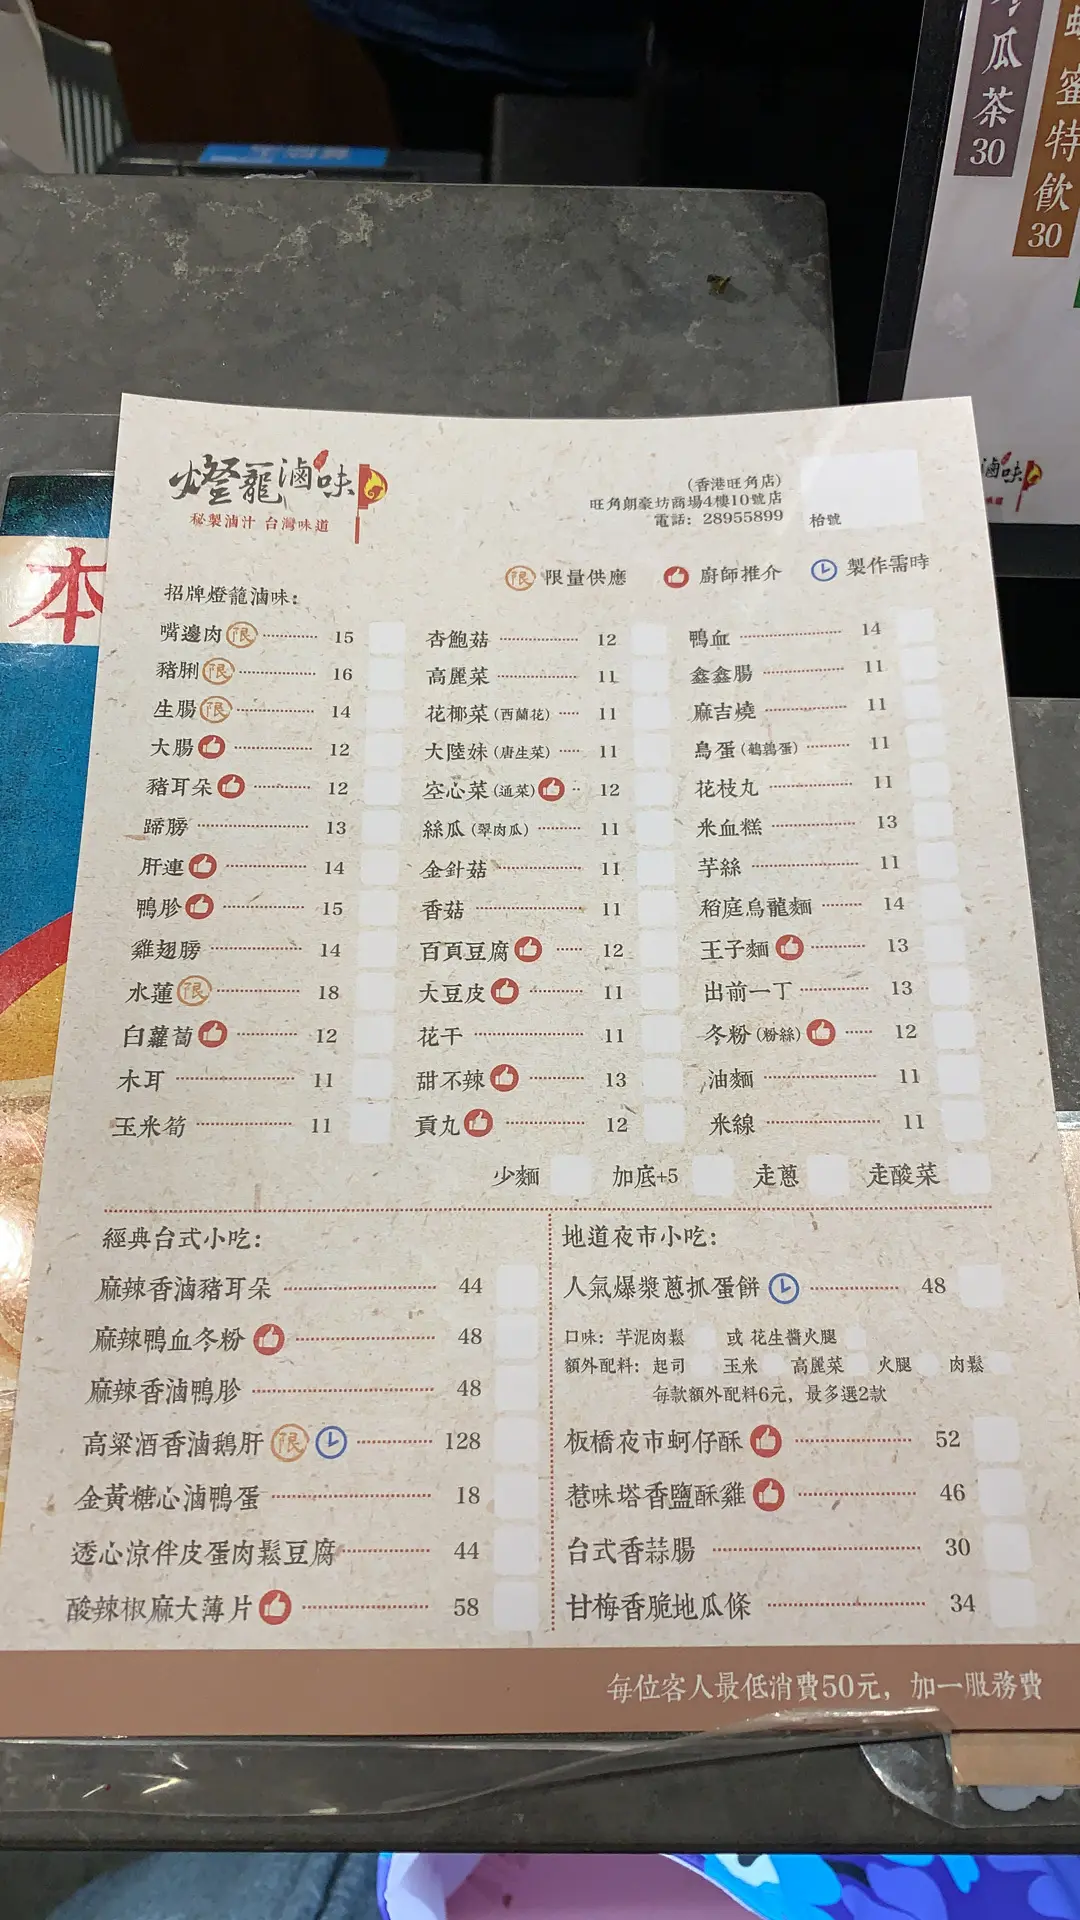 瓜茶
30
蜜特飲
30
本
燈籠滷味
秘製滷汁 台灣味道
(香港旺角店)
旺角朗豪坊商場4樓10號店
電話: 28955899
枱號
限 限量供應 廚師推介 製作需時
招牌燈籠滷味:
嘴邊肉 限 15
豬脷 限 16
生腸 限 14
大腸 12
豬耳朵 12
蹄膀 13
肝連 14
鴨胗 15
雞翅膀 14
水蓮 限 18
白蘿蔔 12
木耳 11
玉米筍 11
杏鮑菇 12
高麗菜 11
花椰菜 (西蘭花) 11
大陸妹 (唐生菜) 11
空心菜 (通菜) 12
絲瓜 (翠肉瓜) 11
金針菇 11
香菇 11
百頁豆腐 12
大豆皮 11
花干 11
甜不辣 13
貢丸 12
鴨血 14
鑫鑫腸 11
麻吉燒 11
鳥蛋 (鵪鶉蛋) 11
花枝丸 11
米血糕 13
芋絲 11
稻庭烏龍麵 14
王子麵 13
出前一丁 13
冬粉 (粉絲) 12
油麵 11
米線 11
少麵 加底+5 走蔥 走酸菜
經典台式小吃:
麻辣香滷豬耳朵 44
麻辣鴨血冬粉 48
麻辣香滷鴨胗 48
高粱酒香滷鵝肝 限 128
金黃糖心滷鴨蛋 18
透心涼伴皮蛋肉鬆豆腐 44
酸辣椒麻大薄片 58
地道夜市小吃:
人氣爆漿蔥抓蛋餅 48
口味: 芋泥肉鬆 或 花生醬火腿
額外配料: 起司 玉米 高麗菜 火腿 肉鬆
每款額外配料6元, 最多選2款
板橋夜市蚵仔酥 52
惹味塔香鹽酥雞 46
台式香蒜腸 30
甘梅香脆地瓜條 34
每位客人最低消費50元, 加一服務費
滷味